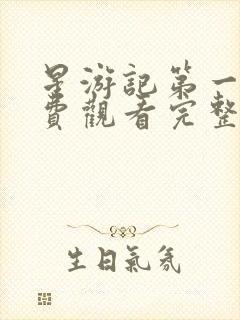 星游記第一
費觀看完整
生日氣氛